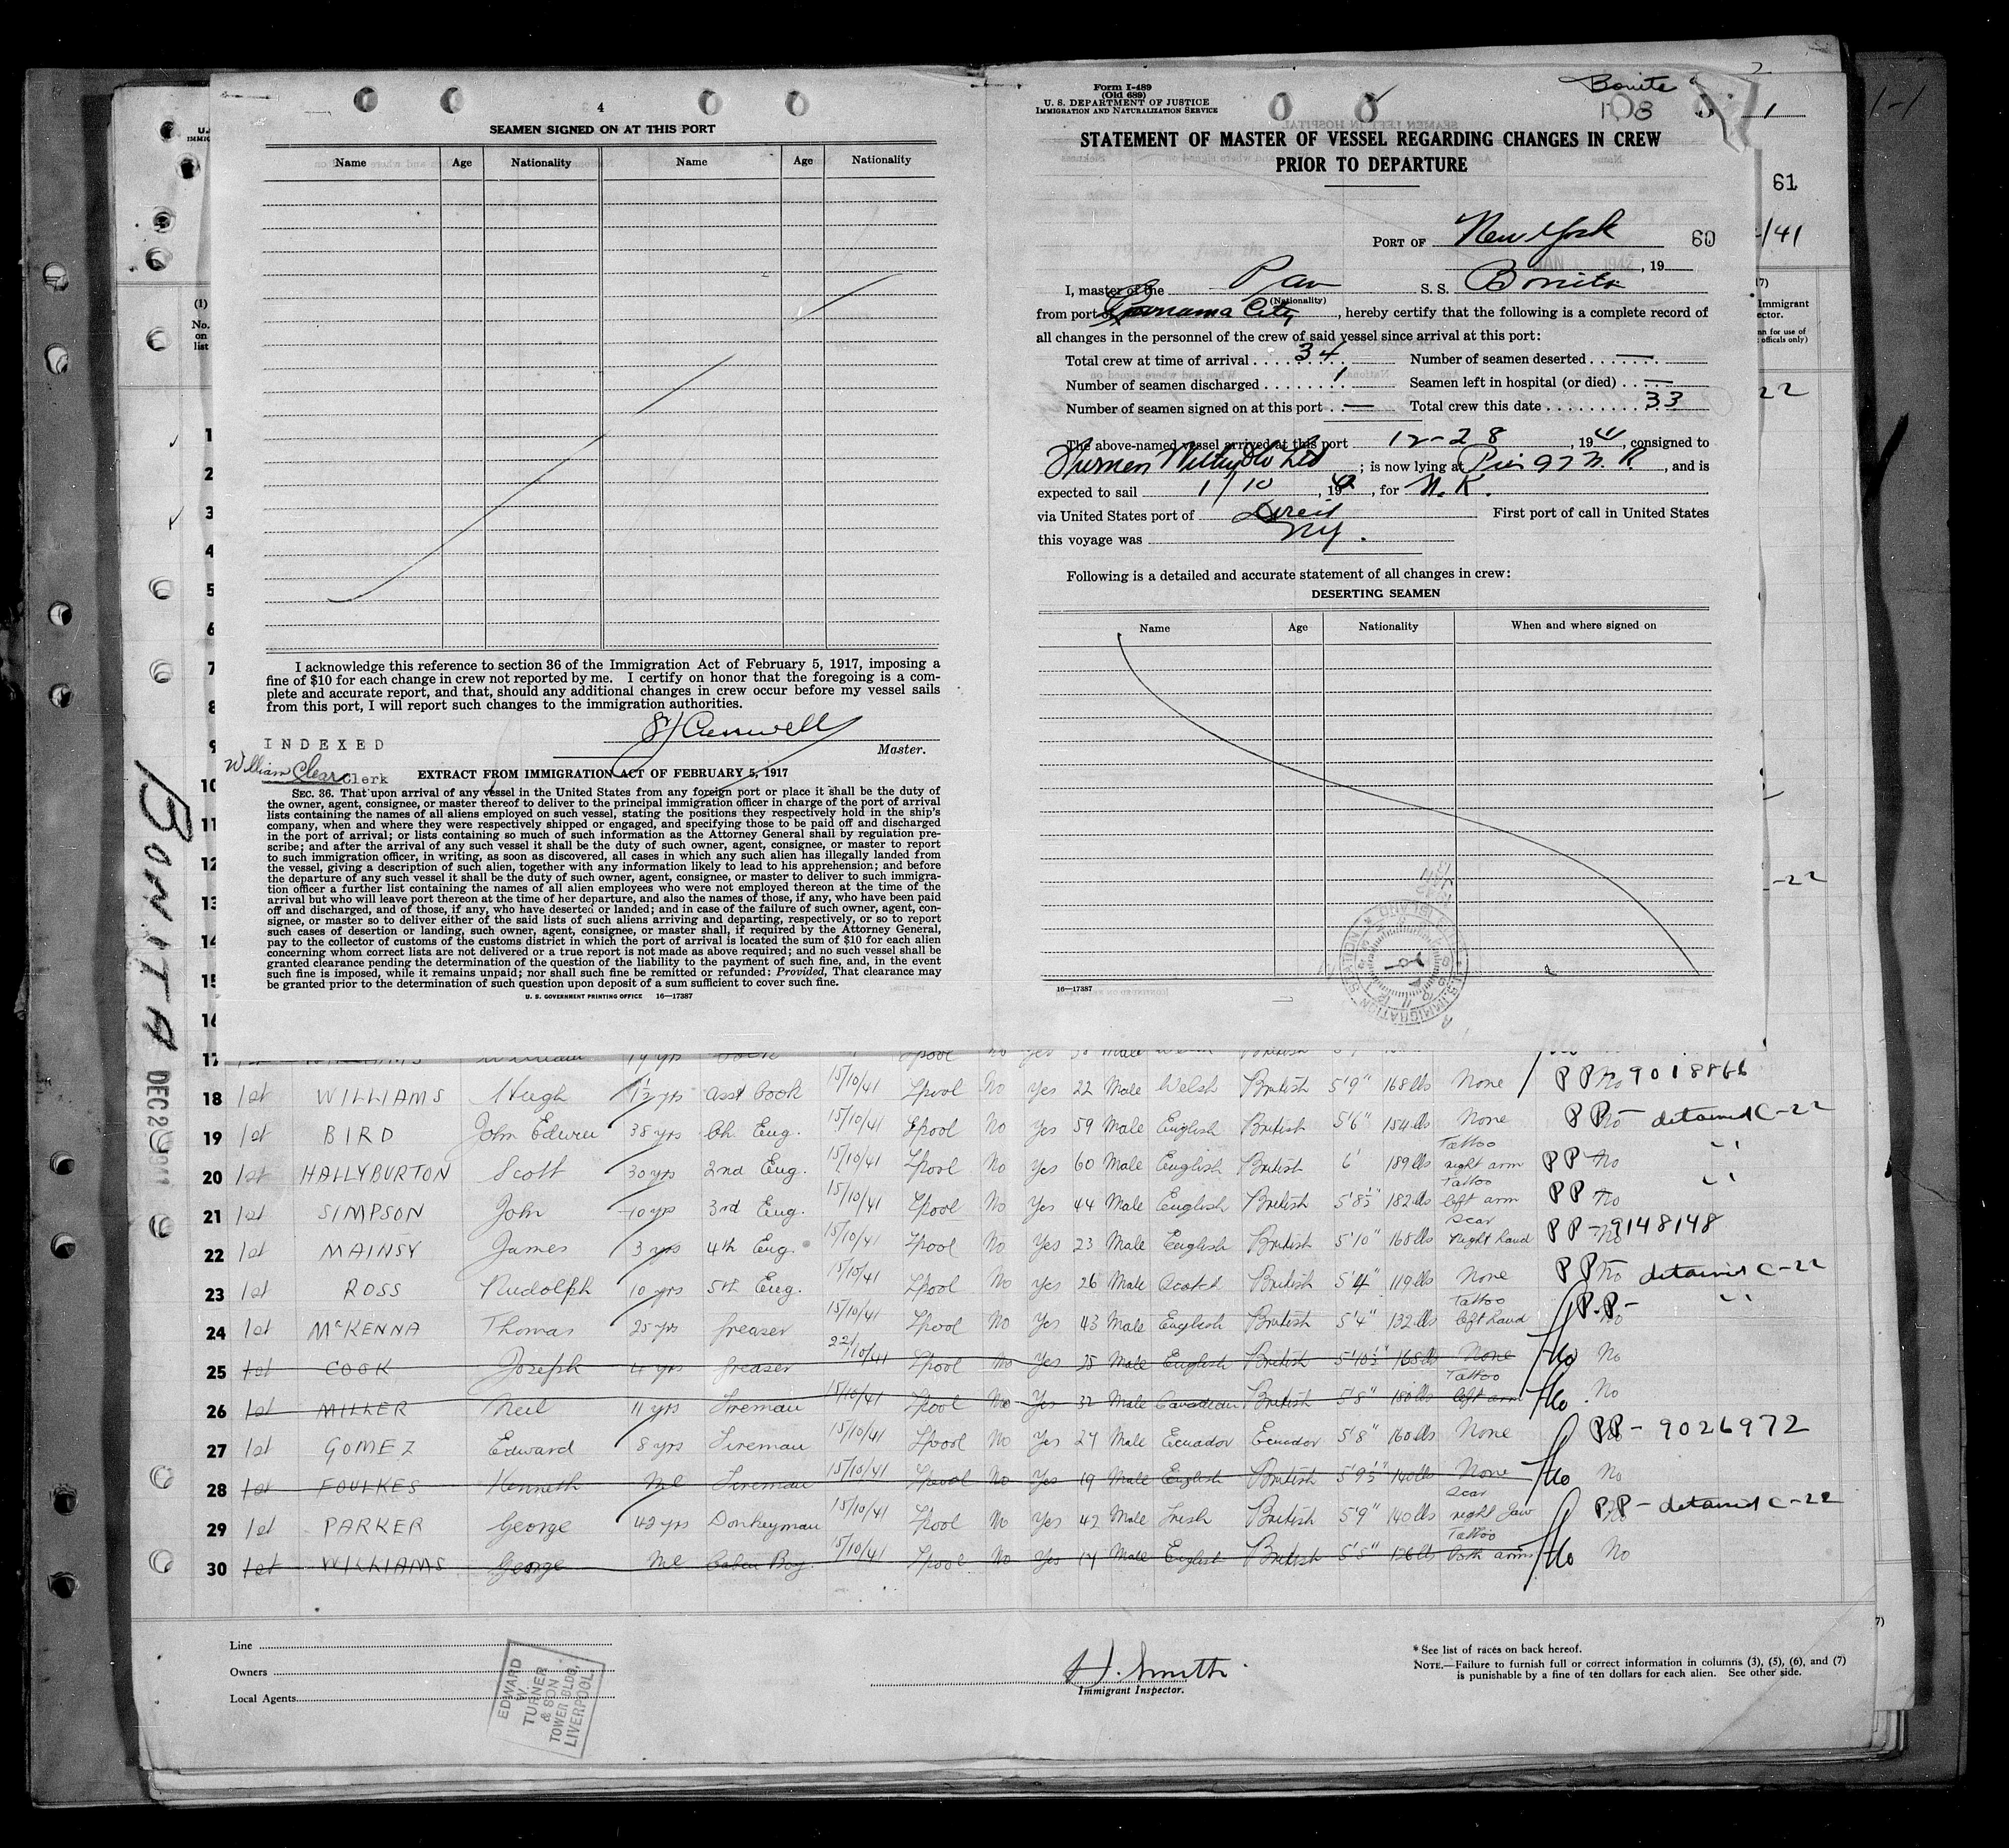 4
SEAMEN SIGNED ON AT THIS PORT
Name Age Nationality Name Age Nationality
I acknowledge this reference to section 36 of the Immigration Act of February 5, 1917, imposing a
fine of $10 for each change in crew not reported by me. I certify on honor that the foregoing is a com-
plete and accurate report, and that, should any additional changes in crew occur before my vessel sails
from this port, I will report such changes to the immigration authorities.
Master.
INDEXED
William Clear Clerk
EXTRACT FROM IMMIGRATION ACT OF FEBRUARY 5, 1917
SEC. 36. That upon arrival of any vessel in the United States from any foreign port or place it shall be the duty of
the owner, agent, consignee, or master thereof to deliver to the principal immigration officer in charge of the port of arrival
lists containing the names of all aliens employed on such vessel, stating the positions they respectively hold in the ship's
company, when and where they were respectively shipped or engaged, and specifying those to be paid off and discharged
in the port of arrival; or lists containing so much of such information as the Attorney General shall by regulation pre-
scribe; and after the arrival of any such vessel it shall be the duty of such owner, agent, consignee, or master to report
to such immigration officer, in writing, as soon as discovered, all cases in which any such alien has illegally landed from
the vessel, giving a description of such alien, together with any information likely to lead to his apprehension; and before
the departure of any such vessel it shall be the duty of such owner, agent, consignee, or master to deliver to such immigra-
tion officer a further list containing the names of all alien employees who were not employed thereon at the time of the
arrival but who will leave port thereon at the time of her departure, and also the names of those, if any, who have been paid
off and discharged, and of those, if any, who have deserted or landed; and in case of the failure of such owner, agent, con-
signee, or master so to deliver either of the said lists of such aliens arriving and departing, respectively, or so to report
such cases of desertion or landing, such owner, agent, consignee, or master shall, if required by the Attorney General,
pay to the collector of customs of the customs district in which the port of arrival is located the sum of $10 for each alien
concerning whom correct lists are not delivered or a true report is not made as above required; and no such vessel shall be
granted clearance pending the determination of the question of the liability to the payment of such fine, and, in the event
such fine is imposed, while it remains unpaid; nor shall such fine be remitted or refunded: Provided, That clearance may
be granted prior to the determination of such question upon deposit of a sum sufficient to cover such fine.
U. S. GOVERNMENT PRINTING OFFICE 16—17387
Form I-489
(Old 689)
U. S. DEPARTMENT OF JUSTICE
IMMIGRATION AND NATURALIZATION SERVICE
STATEMENT OF MASTER OF VESSEL REGARDING CHANGES IN CREW
PRIOR TO DEPARTURE
PORT OF New York 60
, 19
I, master of the Pan S. S. Bonita
(Nationality)
from port of Panama City, hereby certify that the following is a complete record of
all changes in the personnel of the crew of said vessel since arrival at this port:
Total crew at time of arrival 34 Number of seamen deserted —
Number of seamen discharged 1 Seamen left in hospital (or died) —
Number of seamen signed on at this port — Total crew this date 33
The above-named vessel arrived at this port 12-28, 1941, consigned to
; is now lying at Pier 97 N. R, and is
expected to sail 1/10, 1942, for N. K.
via United States port of Direct First port of call in United States
this voyage was NY.
Following is a detailed and accurate statement of all changes in crew:
DESERTING SEAMEN
Name Age Nationality When and where signed on
16—17387
61
BONITA
18 1st WILLIAMS Hugh 1½ yrs asst Cook 15/10/41 Lpool No Yes 22 Male Welsh British 5'9" 168 lbs None PP No 9018866
19 1st BIRD John Edwin 38 yrs Ch. Eng. 15/10/41 Lpool No Yes 59 Male English British 5'6" 154 lbs None PP No detained C-22
20 1st HALLYBURTON Scott 30 yrs 2nd Eng. 15/10/41 Lpool No Yes 60 Male English British 6' 189 lbs Tattoo right arm PP No " "
21 1st SIMPSON John 10 yrs 3rd Eng. 15/10/41 Lpool No Yes 44 Male English British 5'8½" 182 lbs Tattoo left arm PP No " "
22 1st MAINSY James 3 yrs 4th Eng. 15/10/41 Lpool No Yes 23 Male English British 5'10" 168 lbs Scar right hand PP No 9148148
23 1st ROSS Rudolph 10 yrs 5th Eng. 15/10/41 Lpool No Yes 26 Male Scotch British 5'4" 119 lbs None PP No detained C-22
24 1st McKENNA Thomas 25 yrs Greaser 15/10/41 Lpool No Yes 43 Male English British 5'4" 132 lbs Tattoo left hand P.P- No " "
25 1st COOK Joseph 4 yrs Greaser 22/10/41 Lpool No Yes 25 Male English British 5'10½" 168 lbs None No
26 1st MILLER Neil 11 yrs Fireman 15/10/41 Lpool No Yes 32 Male Canadian British 5'8" 180 lbs Tattoo left arm No
27 1st GOMEZ Edward 8 yrs Fireman 15/10/41 Lpool No Yes 27 Male Ecuador Ecuador 5'8" 160 lbs None PP- 9026972
28 1st FOULKES Kenneth Nil Fireman 15/10/41 Lpool No Yes 19 Male English British 5'9½" 140 lbs None No
29 1st PARKER George 42 yrs Donkeyman 15/10/41 Lpool No Yes 42 Male Irish British 5'9" 140 lbs Scar right jaw P.P- detained C-22
30 1st WILLIAMS George Nil Cabin Boy 15/10/41 Lpool No Yes 17 Male English British 5'5" 126 lbs Tattoo both arms No
Line
Owners
Local Agents
EDWARD
W.
TURNER
& SON
TOWER BLDG.
LIVERPOOL
H. Smith
Immigrant Inspector.
* See list of races on back hereof.
NOTE.—Failure to furnish full or correct information in columns (3), (5), (6), and (7)
is punishable by a fine of ten dollars for each alien. See other side.